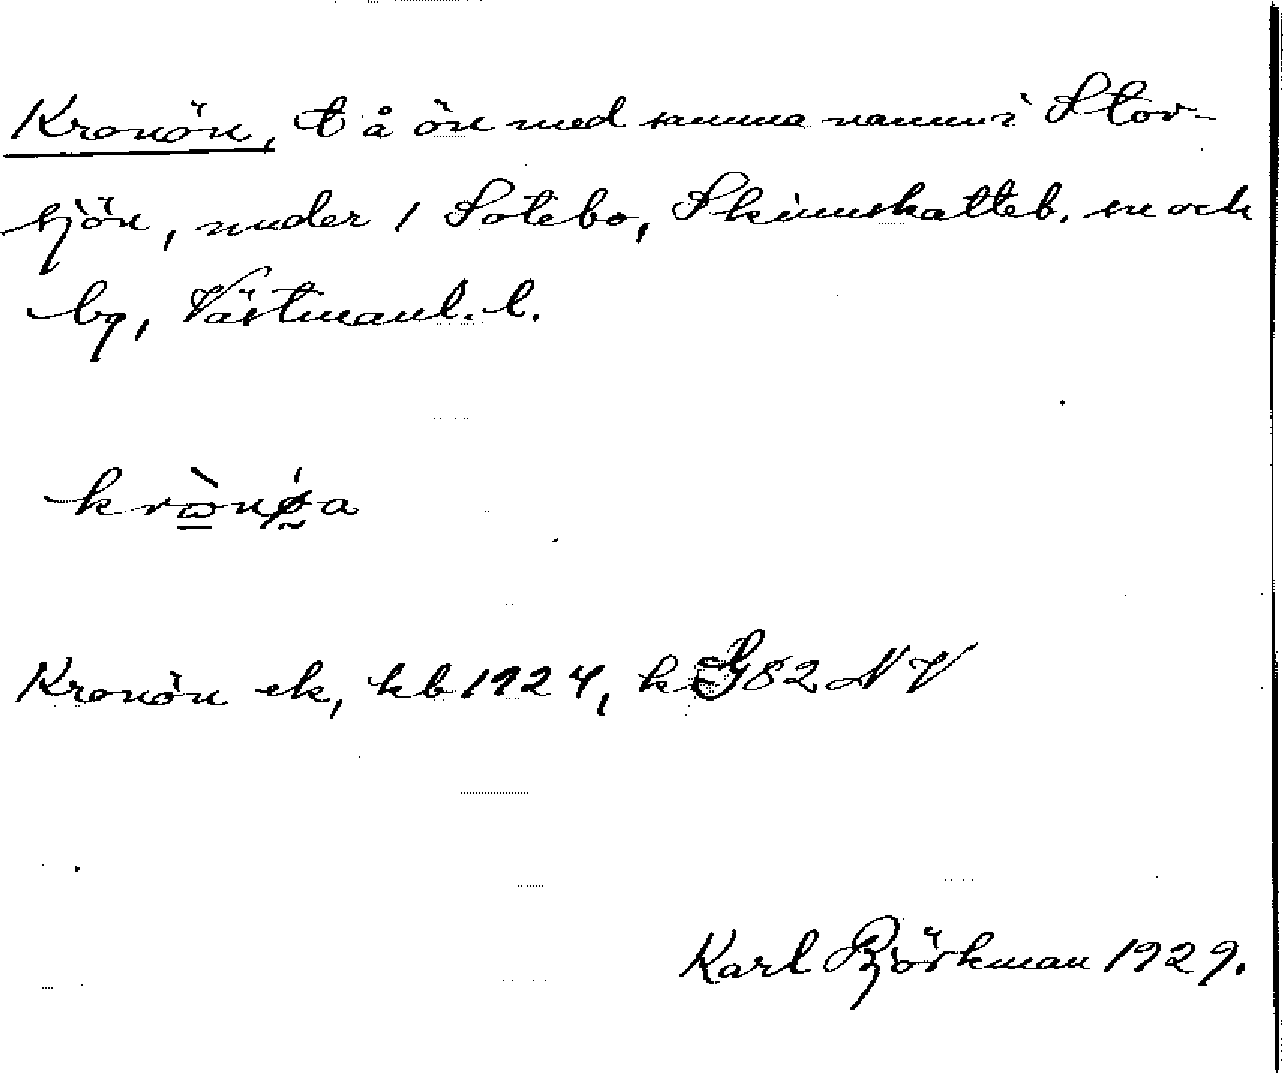 Kronön, t å ön med samma namn i Stor-
sjön, under 1 Sotebo, Skinnskatteb. sn och
bg, Västmanl. l.
krònǿa
Kronön ek, kb 1924, k G82 NV
Karl Björkman 1929.